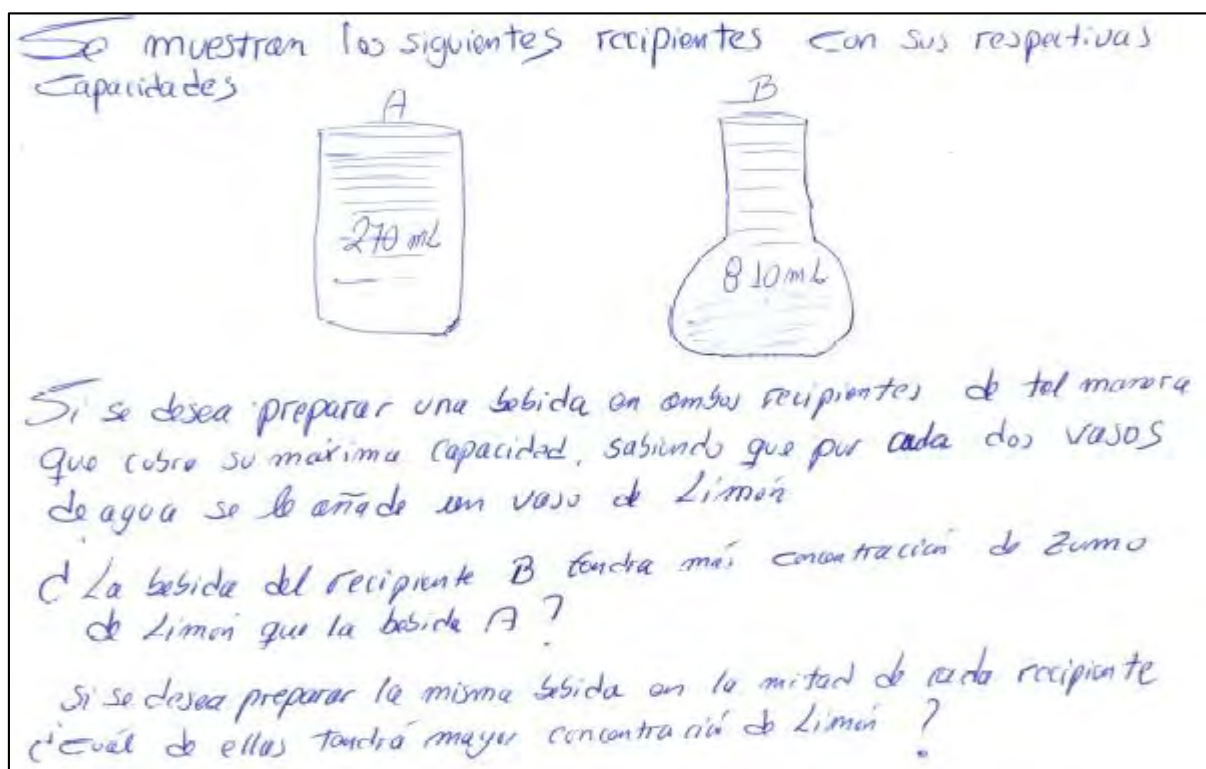 Se muestran los siguientes recipientes con sus respectivas
Capacidades
A B
270 mL 810 mL
Si se desea preparar una bebida en ambos recipientes de tal manera
que cubra su maxima capacidad, sabiendo que por cada dos vasos
de agua se le añade un vaso de Limón
¿La bebida del recipiente B tendra más concentración de Zumo
de Limon que la bebida A?
si se desea preparar la misma bebida en la mitad de cada recipiente
¿Cuál de ellas tendrá mayor concentració de Limón?